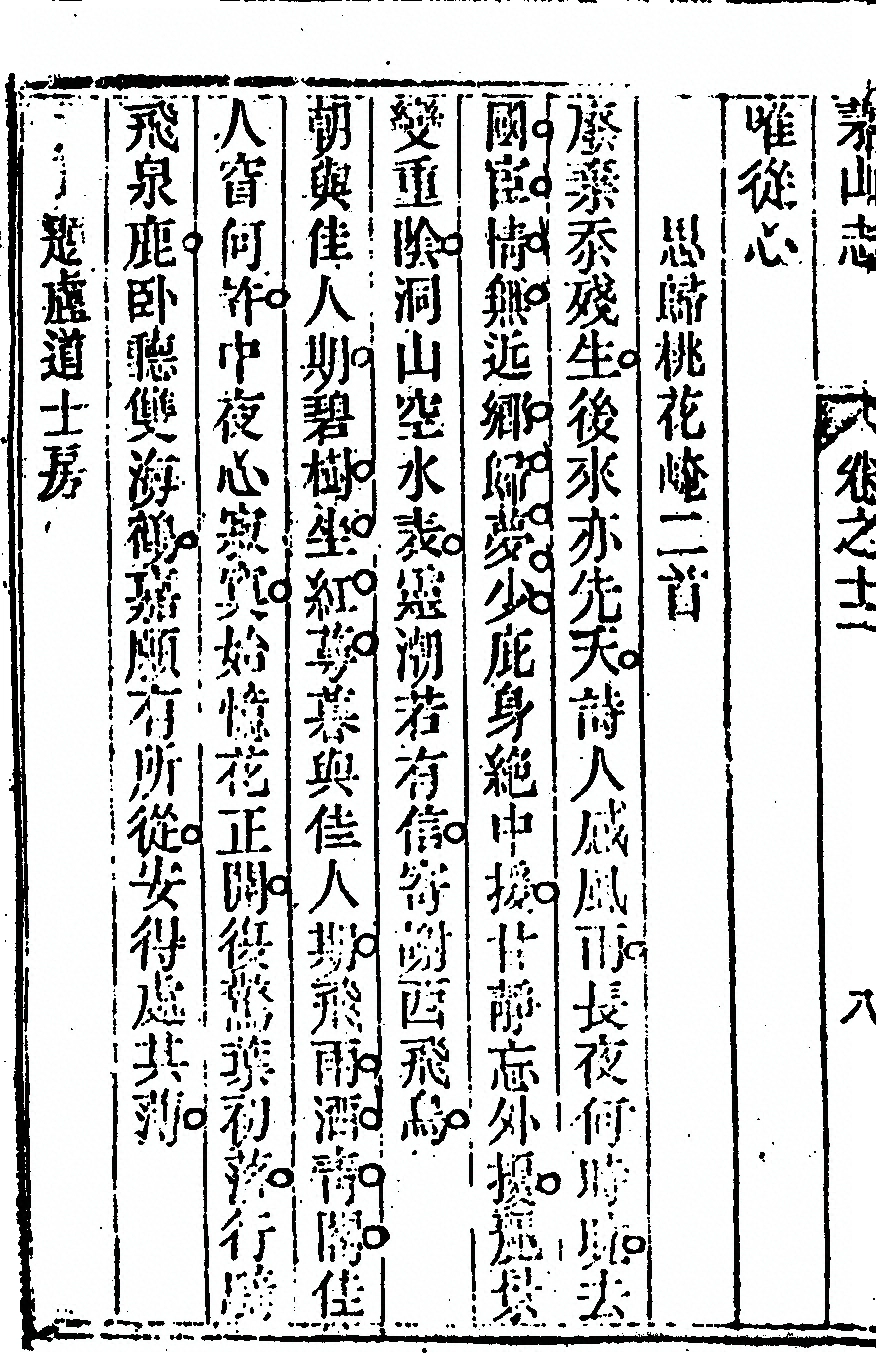 茅山志 卷之十二 八
唯從心
思歸桃花崦二首
廢棄忝殘生後來亦先天詩人感風雨長夜何時曉去
國宦情無近鄉歸夢少庇身絕中援甘靜忘外擾麗景
變重陰洞山空水表靈潮若有信寄謝西飛鳥
朝與佳人期碧樹坐紅萼暮與佳人期飛雨洒靑閣佳
人窅何許中夜心寂寞始憶花正開復驚葉初落行騎
飛泉鹿臥聽雙海鶴嘉願有所從安得處其薄
題盧道士房